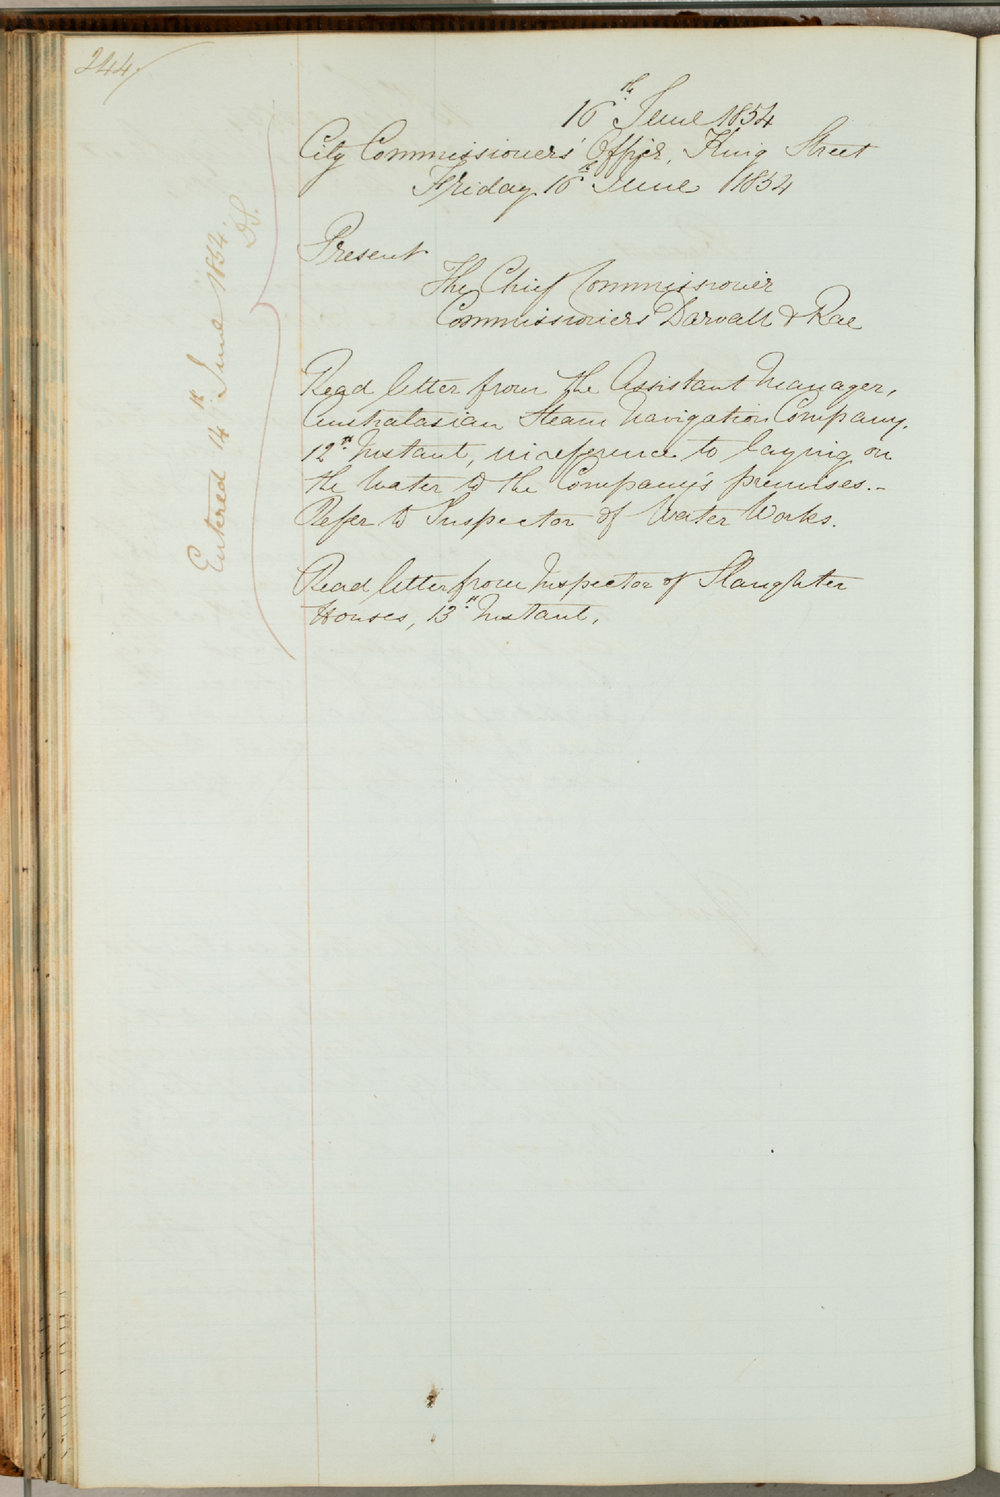 244
16th June 1854
City Commissioners' Office, King Street
Friday 16th June 1854
Present
The Chief Commissioner
Commissioners Darvall & Rae
Read letter from the Assistant Manager,
Australasian Steam Navigation Company,
12th Instant, in reference to laying on
the Water to the Company's premises.-
Refer to Inspector of Water Works.
Read letter from Inspector of Slaughter
Houses, 13th Instant,
Entered 14th June 1854.
D.S.